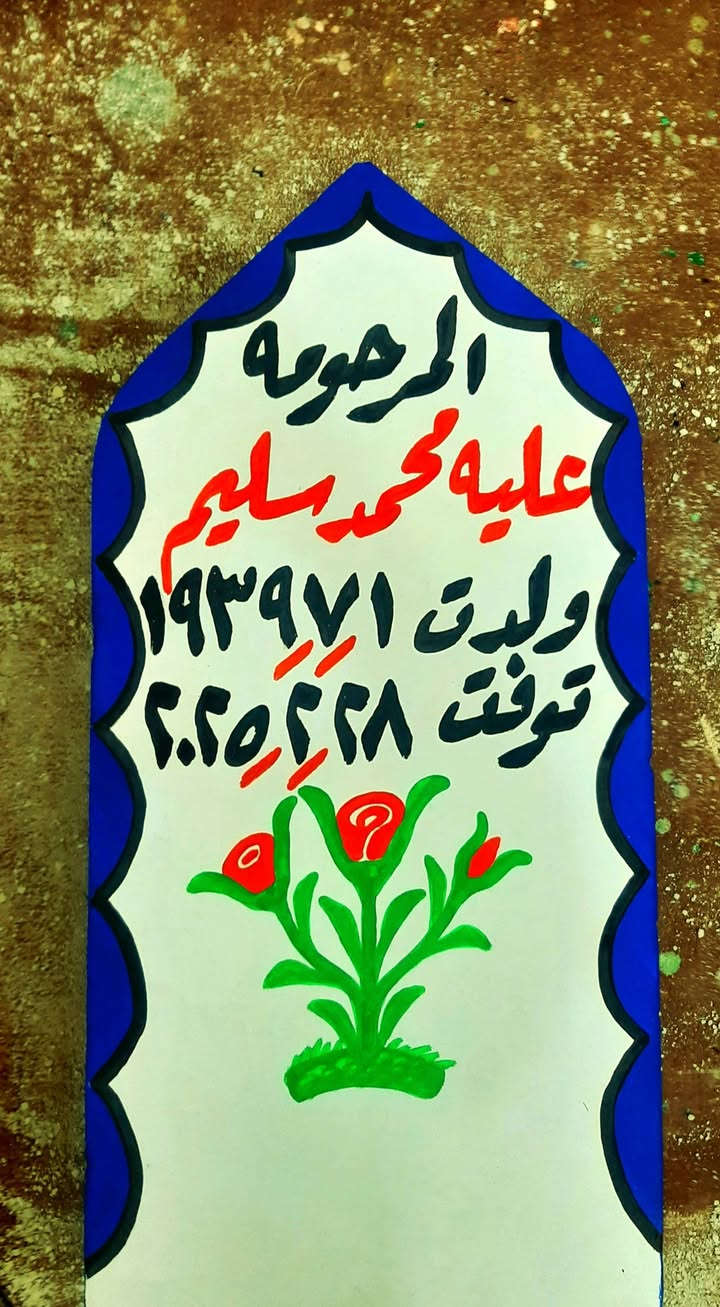 المرحومه
عليه محمد سليم
ولدت ١/٧/١٩٣٩
توفت ٢٨/٢/٢٠٢٥